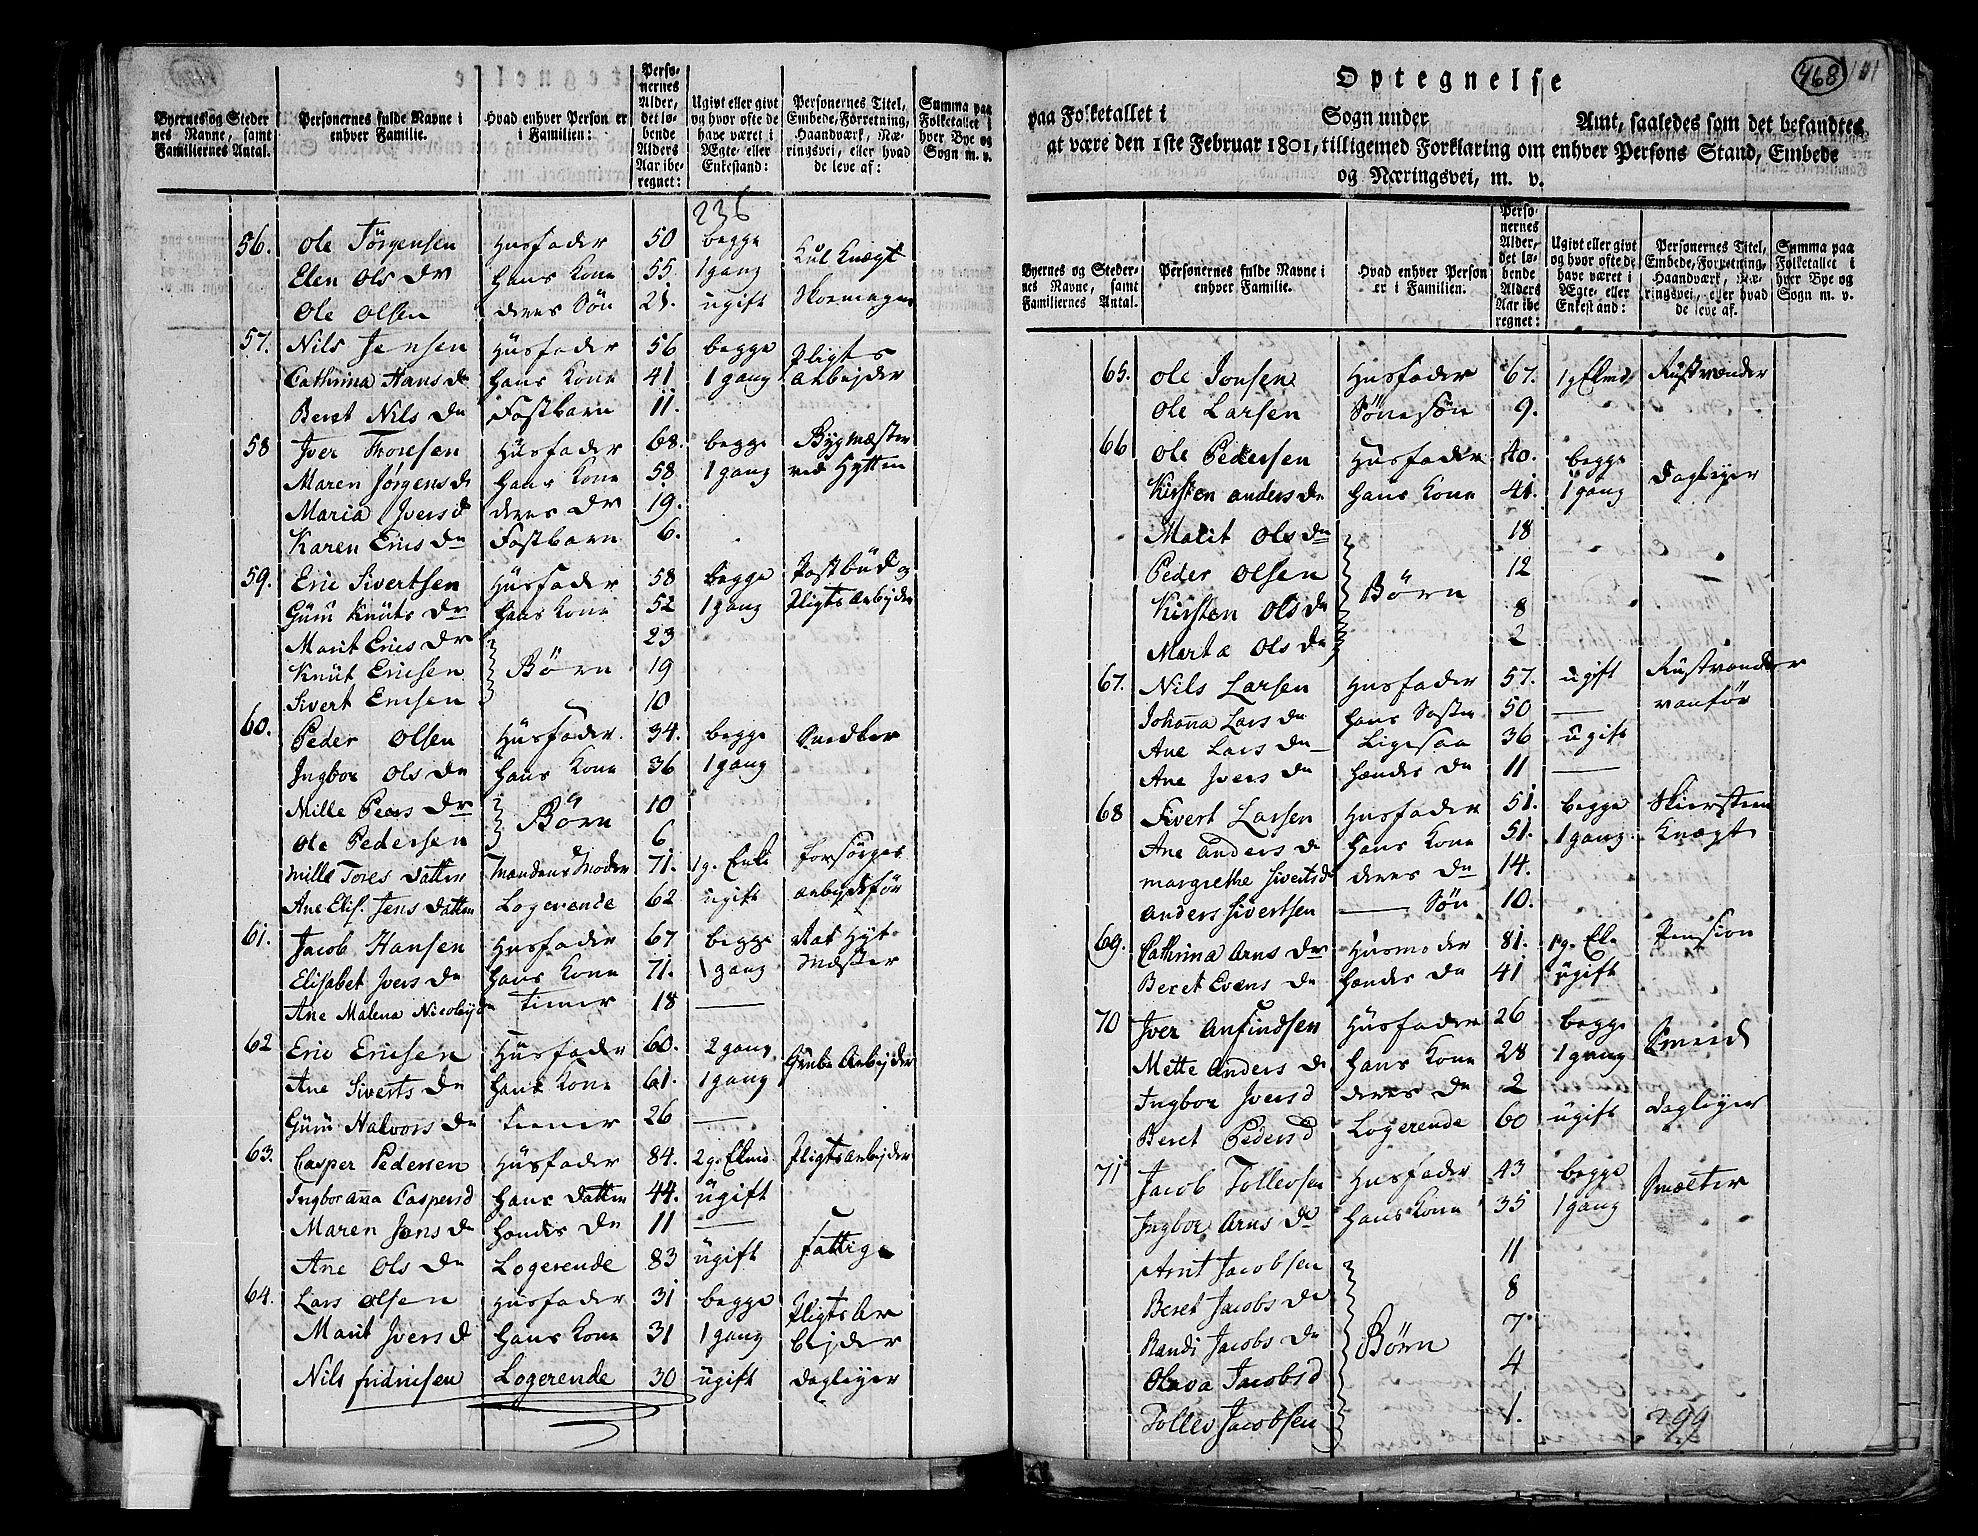 Byernes og Steder
nes Navne, samt
Familiernes Antal.
Personernes fulde Navne i
enhver Familie.
Hvad enhver Person er
i Familien:
Perso-
nernes
Alder,
det lø-
bende
Alders
Aar ibe-
regnet:
Ugivt eller givt
og hvor ofte de
have været i
Ægte- eller
Enkestand:
Personernes Titel,
Embede, Forretning,
Haandværk, Næ-
ringsvei, eller hvad
de leve af:
Summa paa
Folketallet i
hver Bye og
Sogn m. v.
236
56. Ole Jörgensen Husfader 50 begge Kul Knægt
Elen Ols dr hans Kone 55. 1 gang
Ole Olsen deres Sön 21. ugift Skomager
57. Nils Jensen Husfader 56 begge Pligts
Cathrina Hans d hans Kone 41 1 gang Arbejder
Beret Nils dn Fostbarn 11.
58 Jver Thoresen Husfader 68. begge Bygmester
Maren Jörgens d hans Kone 58 1 gang ved Hytten
Maria Jvers d deres dr 19.
Karen Erics dn Fostbarn 6.
59. Eric Sivertsen Husfader 58 begge Postbud og
Guru Knuts dn hans Kone 52 1 gang Pligts Arbejder
Marit Erics dr 23
Knut Ericsen Börn 19
Sivert Ericsen 10
60. Peder Olsen Husfader. 34. begge Snedker
Jngbor Ols dn hans Kone 36 1 gang
Mille Peers dr 10
Ole Pedersen Börn 6
Mille Tores datter Mandens Moder 71. 1 g. Enke forsörges
Ane Elis. Jens datter Logerende 62 ugift arbejdsför
61. Jacob Hansen Husfader 67 begge Hyt-
Elisabet Jvers dn hans Kone 71. 1 gang Mester
Ane Malena Nicolayd tiener 18 —
62 Eric Ericsen Husfader 60. 2 gang Grube Arbejder
Ane Siverts dn hans Kone 61. 1 gang
Guru Halvors dn tiener 26 —
63. Casper Pedersen Husfader 84. 2 g. Elmd. Pligts Arbejder
Jngbor anna Caspersd hans datter 44. ugift
Maren Jens dn hendes dn 11 —
Ane Ols dn Logerende 83 ugift fattig
64. Lars Olsen Husfader 31 begge Pligts Ar
Marit Jvers d hans Kone 31 1 gang bejder
Nils fridricsen Logerende 30 ugift dagleyer
468
101
Optegnelse
paa Folketallet i Sogn under Amt, saaledes som det befandtes
at være den 1ste Februar 1801, tilligemed Forklaring om enhver Persons Stand, Embede
og Næringsvei, m. v.
Byernes og Steder-
nes Navne, samt
Familiernes Antal.
Personernes fulde Navne i
enhver Familie.
Hvad enhver Person
er i Familien.
Perso-
nernes
Alder,
det lø-
bende
Alders
Aar ibe
regnet:
Ugivt eller givt
og hvor ofte de
have været i
Ægte- eller
Enkestand:
Personernes Titel,
Embede, Forretning,
Haandværk, Næ-
ringsvei, eller hvad
de leve af.
Summa paa
Folketallet i
hver Bye og
Sogn m. v.
65. Ole Jonsen Husfader 67. 1 g Elmd Rustvender
Ole Larsen Sönesön 9.
66 Ole Pedersen Husfader 40. begge dagleyer
Kirsten anders dn hans Kone 41. 1 gang
Marit Ols dn 18
Peder Olsen 12
Kirsten Ols dn Börn 8
Marta Ols dn 2
67. Nils Larsen Husfader 57. ugift Rustvender
Johanna Lars dn hans Söster 50 — vanför
Ane Lars dn Ligesaa 36 ugift
Ane Jvers dn hendes dn 11 —
68 Sivert Larsen Husfader 51. begge Skiersteen
Ane anders d hans Kone 51. 1 gang. Knægt
Margrethe Sivertsd deres dn 14.
Anders Sivertsen — Sön 10.
69. Cathrina Arns dn Husmoder 81. 1 g. El. Pension
Beret Evens dn hendes dn 41 ugift
70 Jver Anfindsen Husfader 26 begge Smed
Mette Anders d hans Kone 28 1 gang
Jngbor Jversd deres dn 2
Beret Pedersd Logerende 60 ugift dagleyer
71 Jacob Tollevsen Husfader 43 begge Smelter
Jngbor Arns dn hans Kone 35 1 gang
Arnt Jacobsen 11
Beret Jacobs dn 8
Randi Jacobs dn Börn 7
Olava Jacobsd 4
Tollev Jacobsen 1.
299